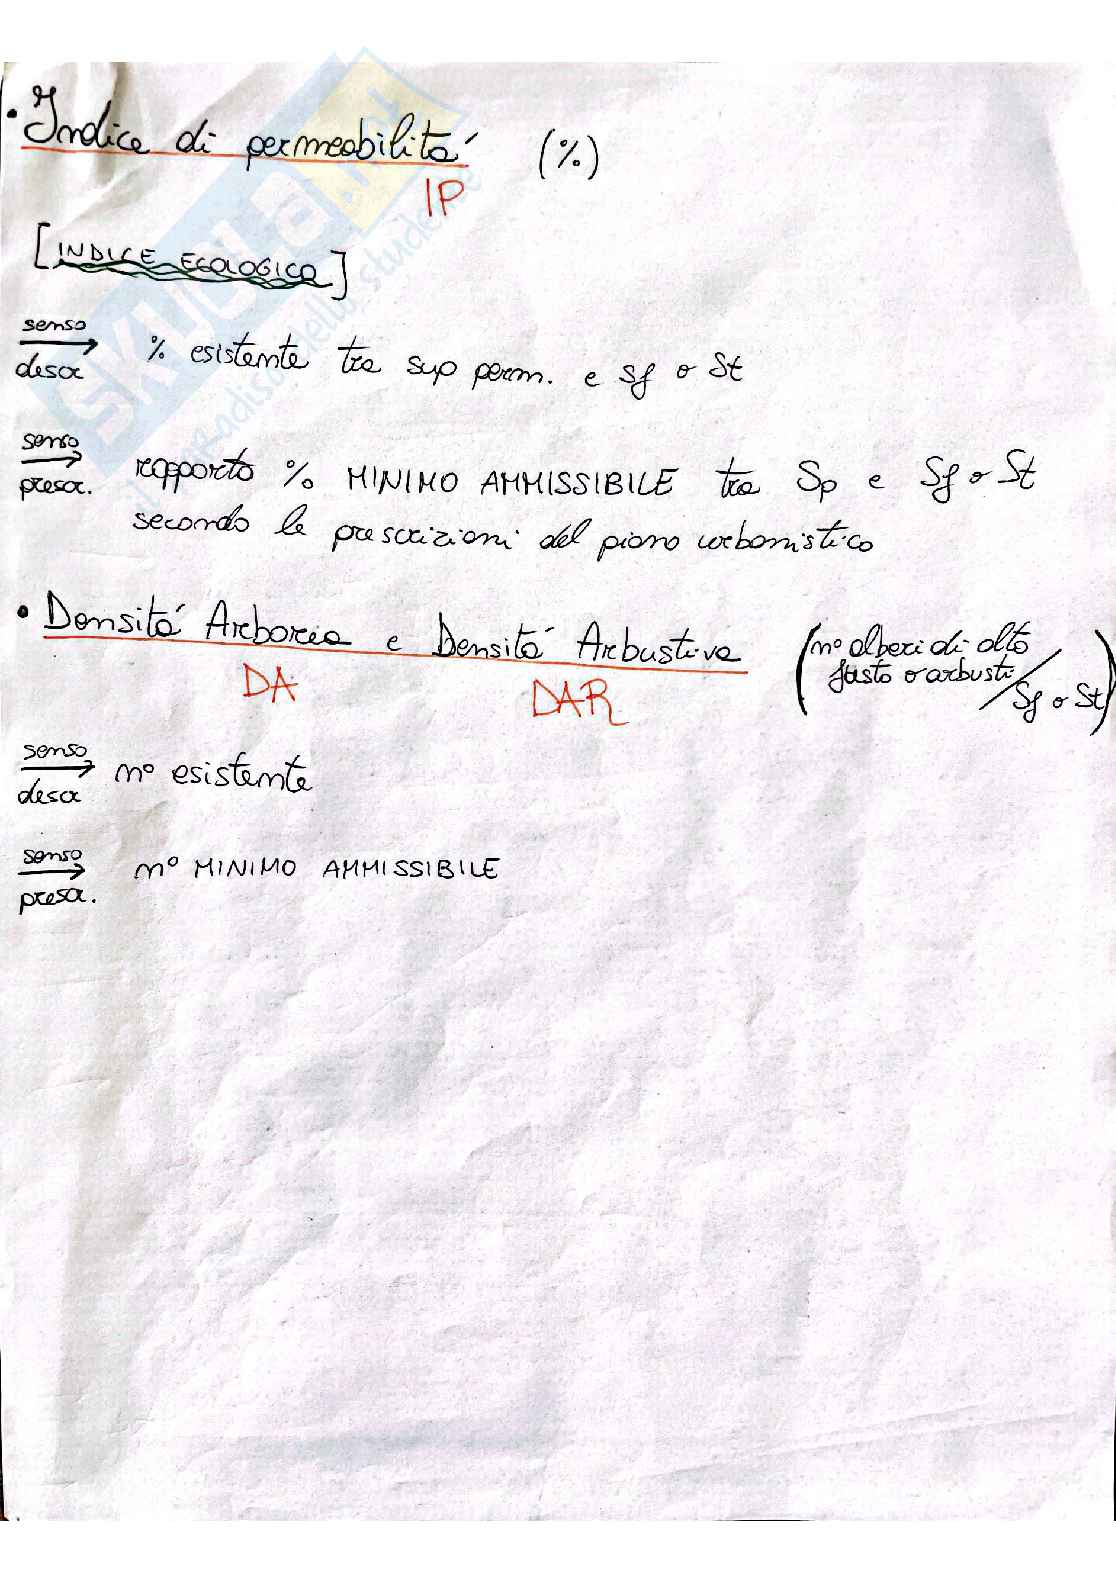 • Indice di permeabilitá (%)
IP
[INDICE ECOLOGICO]
senso
descr
% esistente tra sup perm. e Sf o St
senso
prescr.
rapporto % MINIMO AMMISSIBILE tra Sp e Sf o St
secondo le prescrizioni del piano urbanistico
• Densitá Arborea e Densitá Arbustiva
DA DAR
(n° alberi di alto
fusto o arbusti/
Sf o St)
senso
descr
n° esistente
senso
prescr.
n° MINIMO AMMISSIBILE
SKUOLA.NET
il paradiso dello studente